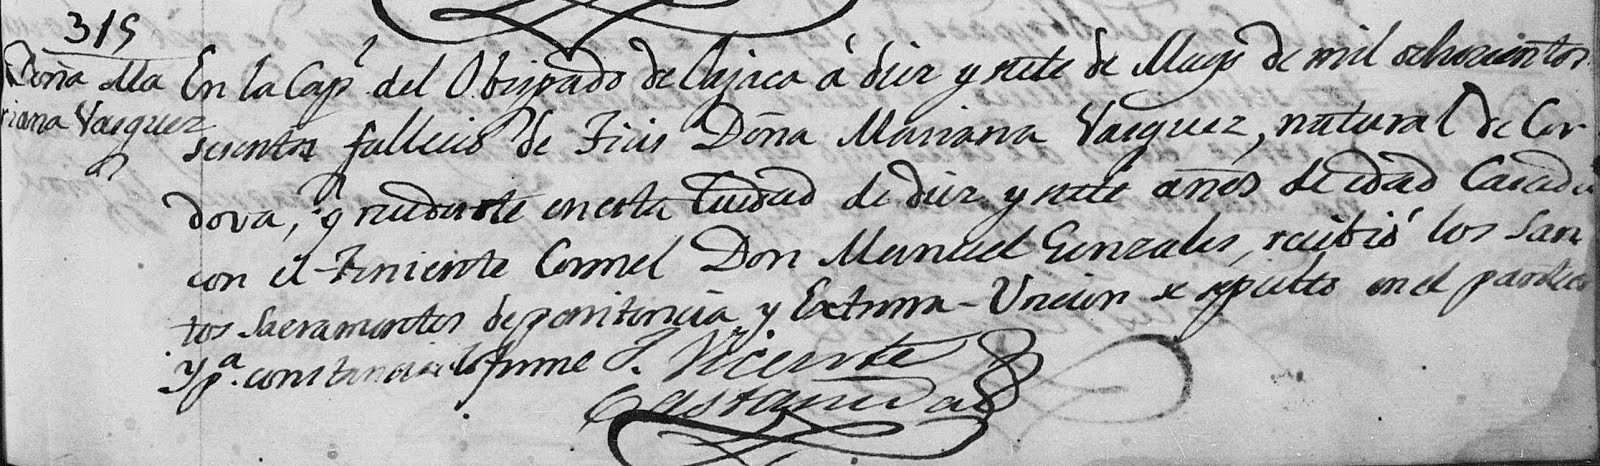 315
Doña Ma
riana Vasquez
En la Cap.l del Obispado de Oajaca á diez y siete de Mayo de mil ochocientos
sesenta fallecio de Tiŝis Doña Mariana Vasquez, natural de Cor
dova, y residente en esta Ciudad de diez y siete años de edad Casada
con el Teniente Cornel Don Manuel Gonzales, recibió los San
tos Sacramentos de penitencia y Extrema-Uncion se sepulto en el panteon
y p.a constancia lo firme J. Vicente
Castañeda